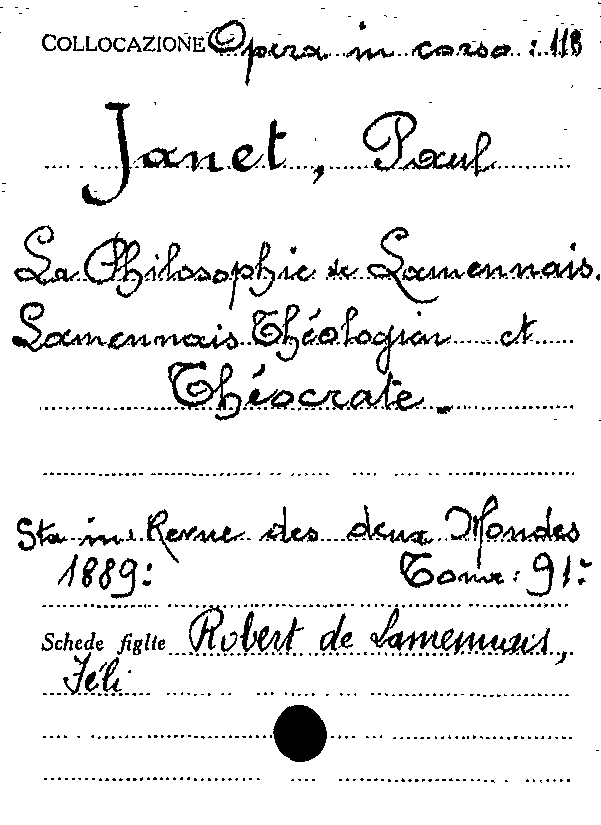 COLLOCAZIONE Opera in corso : 118
Janet, Paul
La Philosophie de Lamennais.
Lamennais Théologien et
Théocrate.
Sta in: Revue des deux Mondes
1889: Tome: 91:
Schede figlie Robert de Lamennais,
Féli